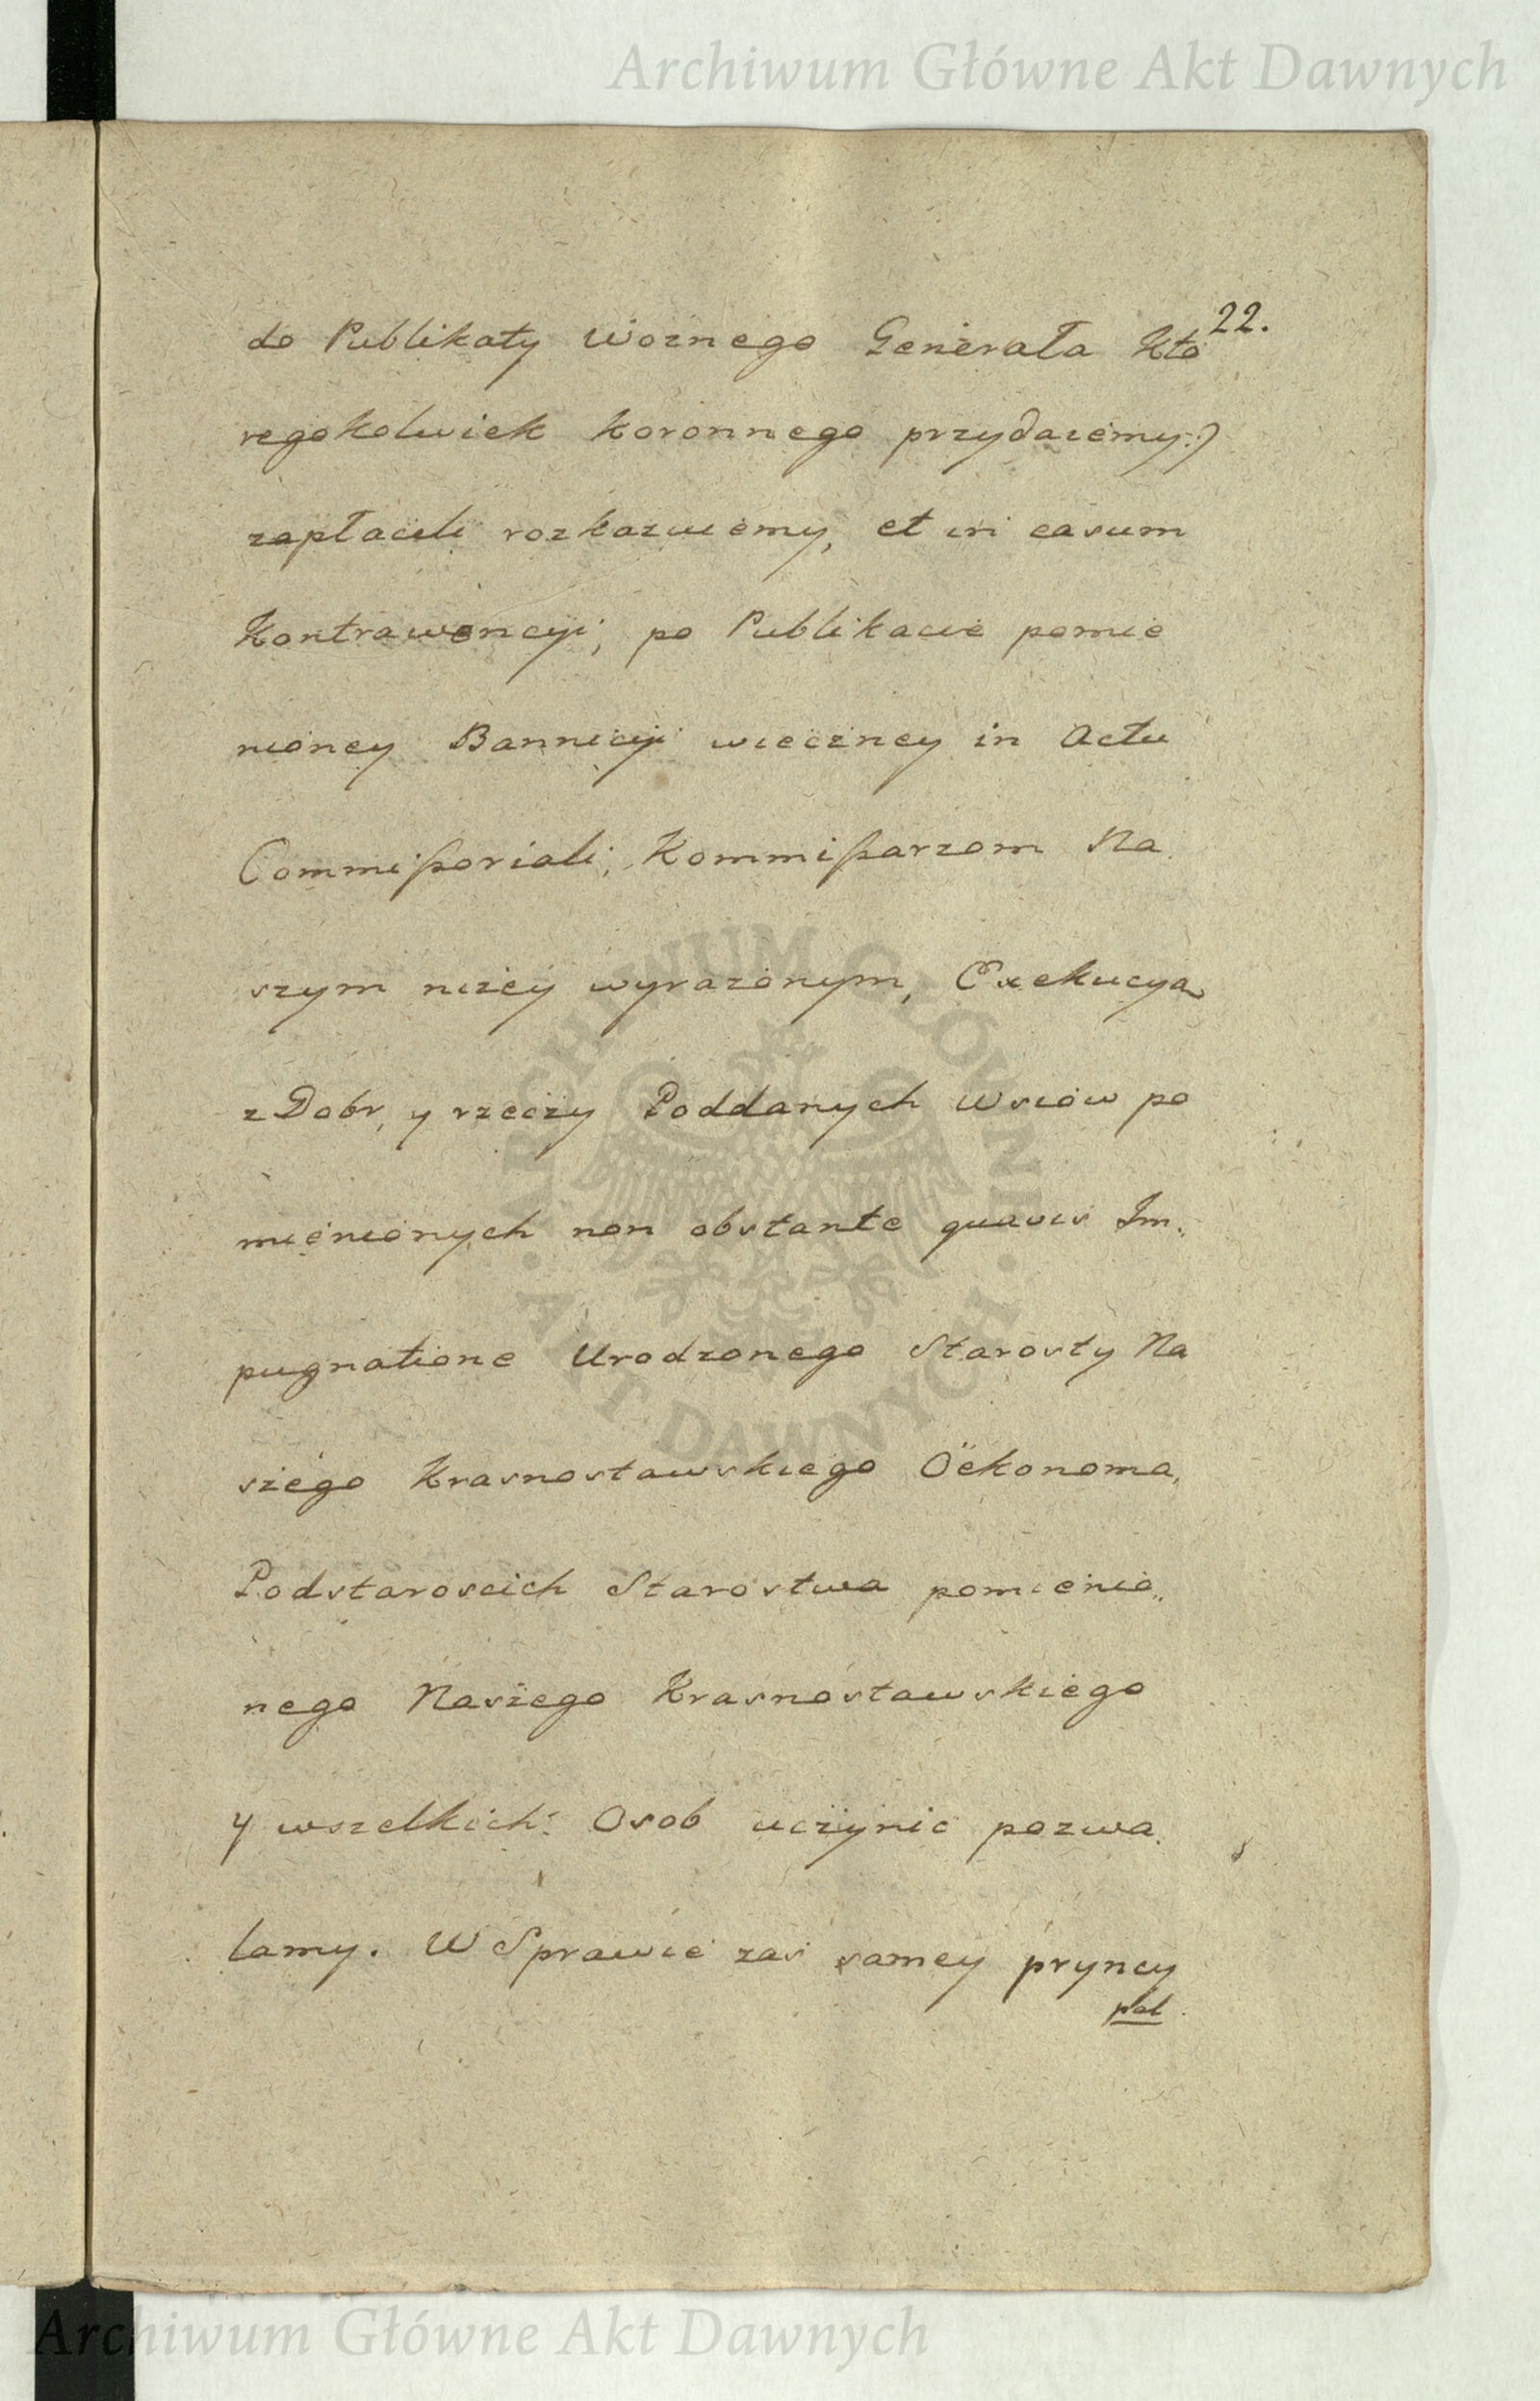 Archiwum Główne Akt Dawnych
22.
do Publikaty Woznego Generała Kto
regokolwiek Koronnego przydaiemy:)
zapłacili rozkazuiemy, et in casum
Kontrawencyi; po Publikacie pomie
nioney Bannicyi wieczney in Actu
Commißoriali; Kommißarzom Na
szym niżey wyrazonym, Exekucyą
z Dobr, y rzeczy Poddanych Wsiow po
mienionych non obstante quavis Im„
pugnatione Urodzonego Starosty Na
szego Krasnostawskiego Oëkonoma,
Podstaroscich Starostwa pomienio„
nego Naszego Krasnostawskiego
y wszelkich Osob uczynic pozwa
lamy. W Sprawie zas samey pryncy
pal
ARCHIWUM GŁÓWNE · AKT DAWNYCH ·
Archiwum Główne Akt Dawnych